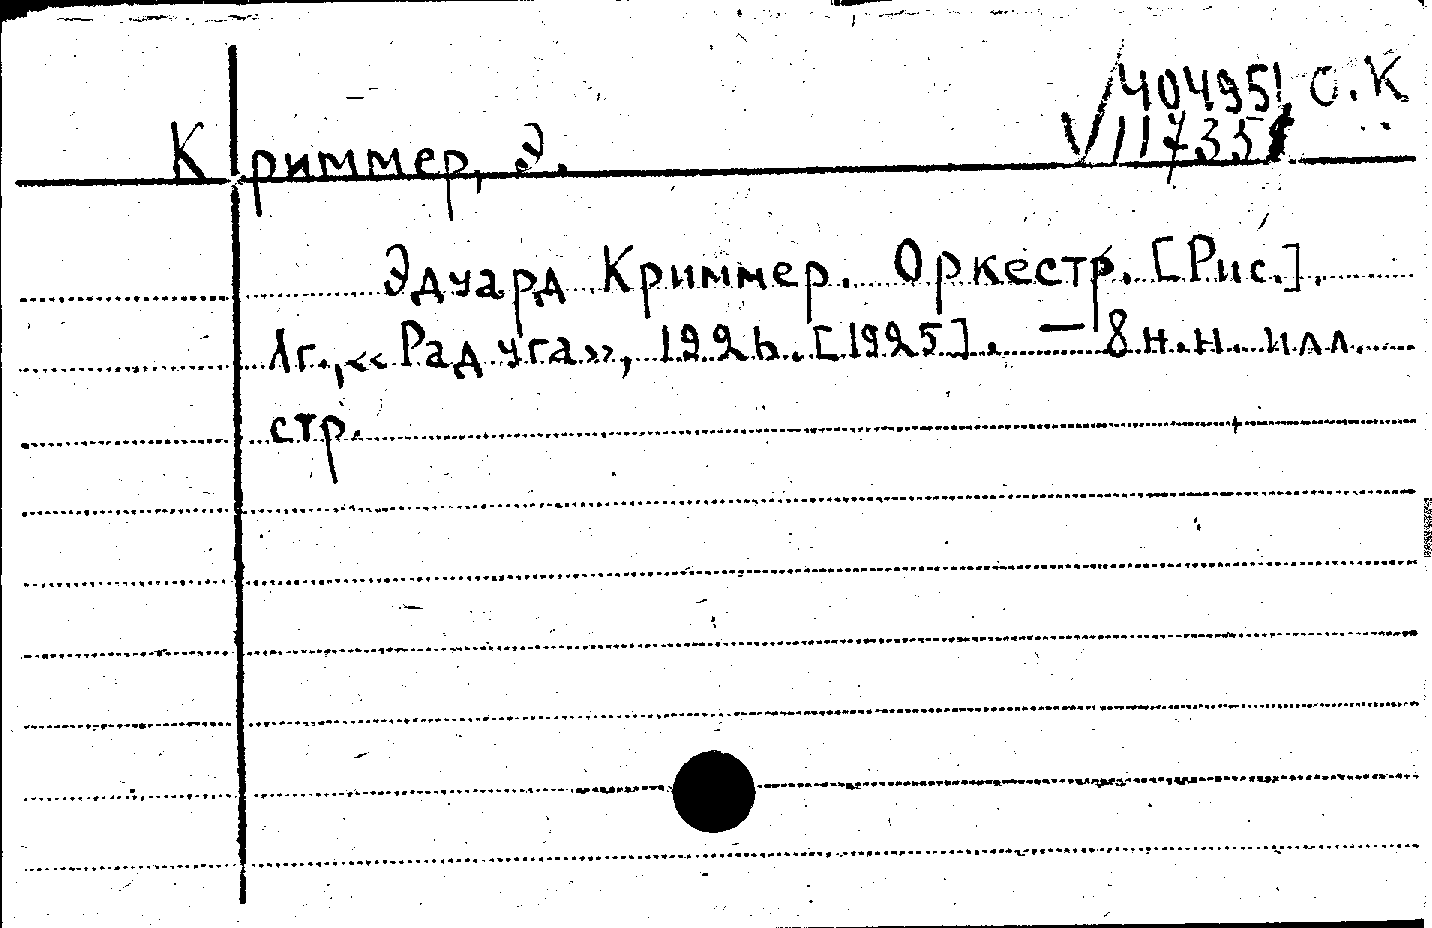 404951 О.К
Криммер, Э.
Эдуард Криммер. Оркестр. [Рис.].
Лг., «Радуга», 1926. [1925]. — 8 н.н. илл.
стр.